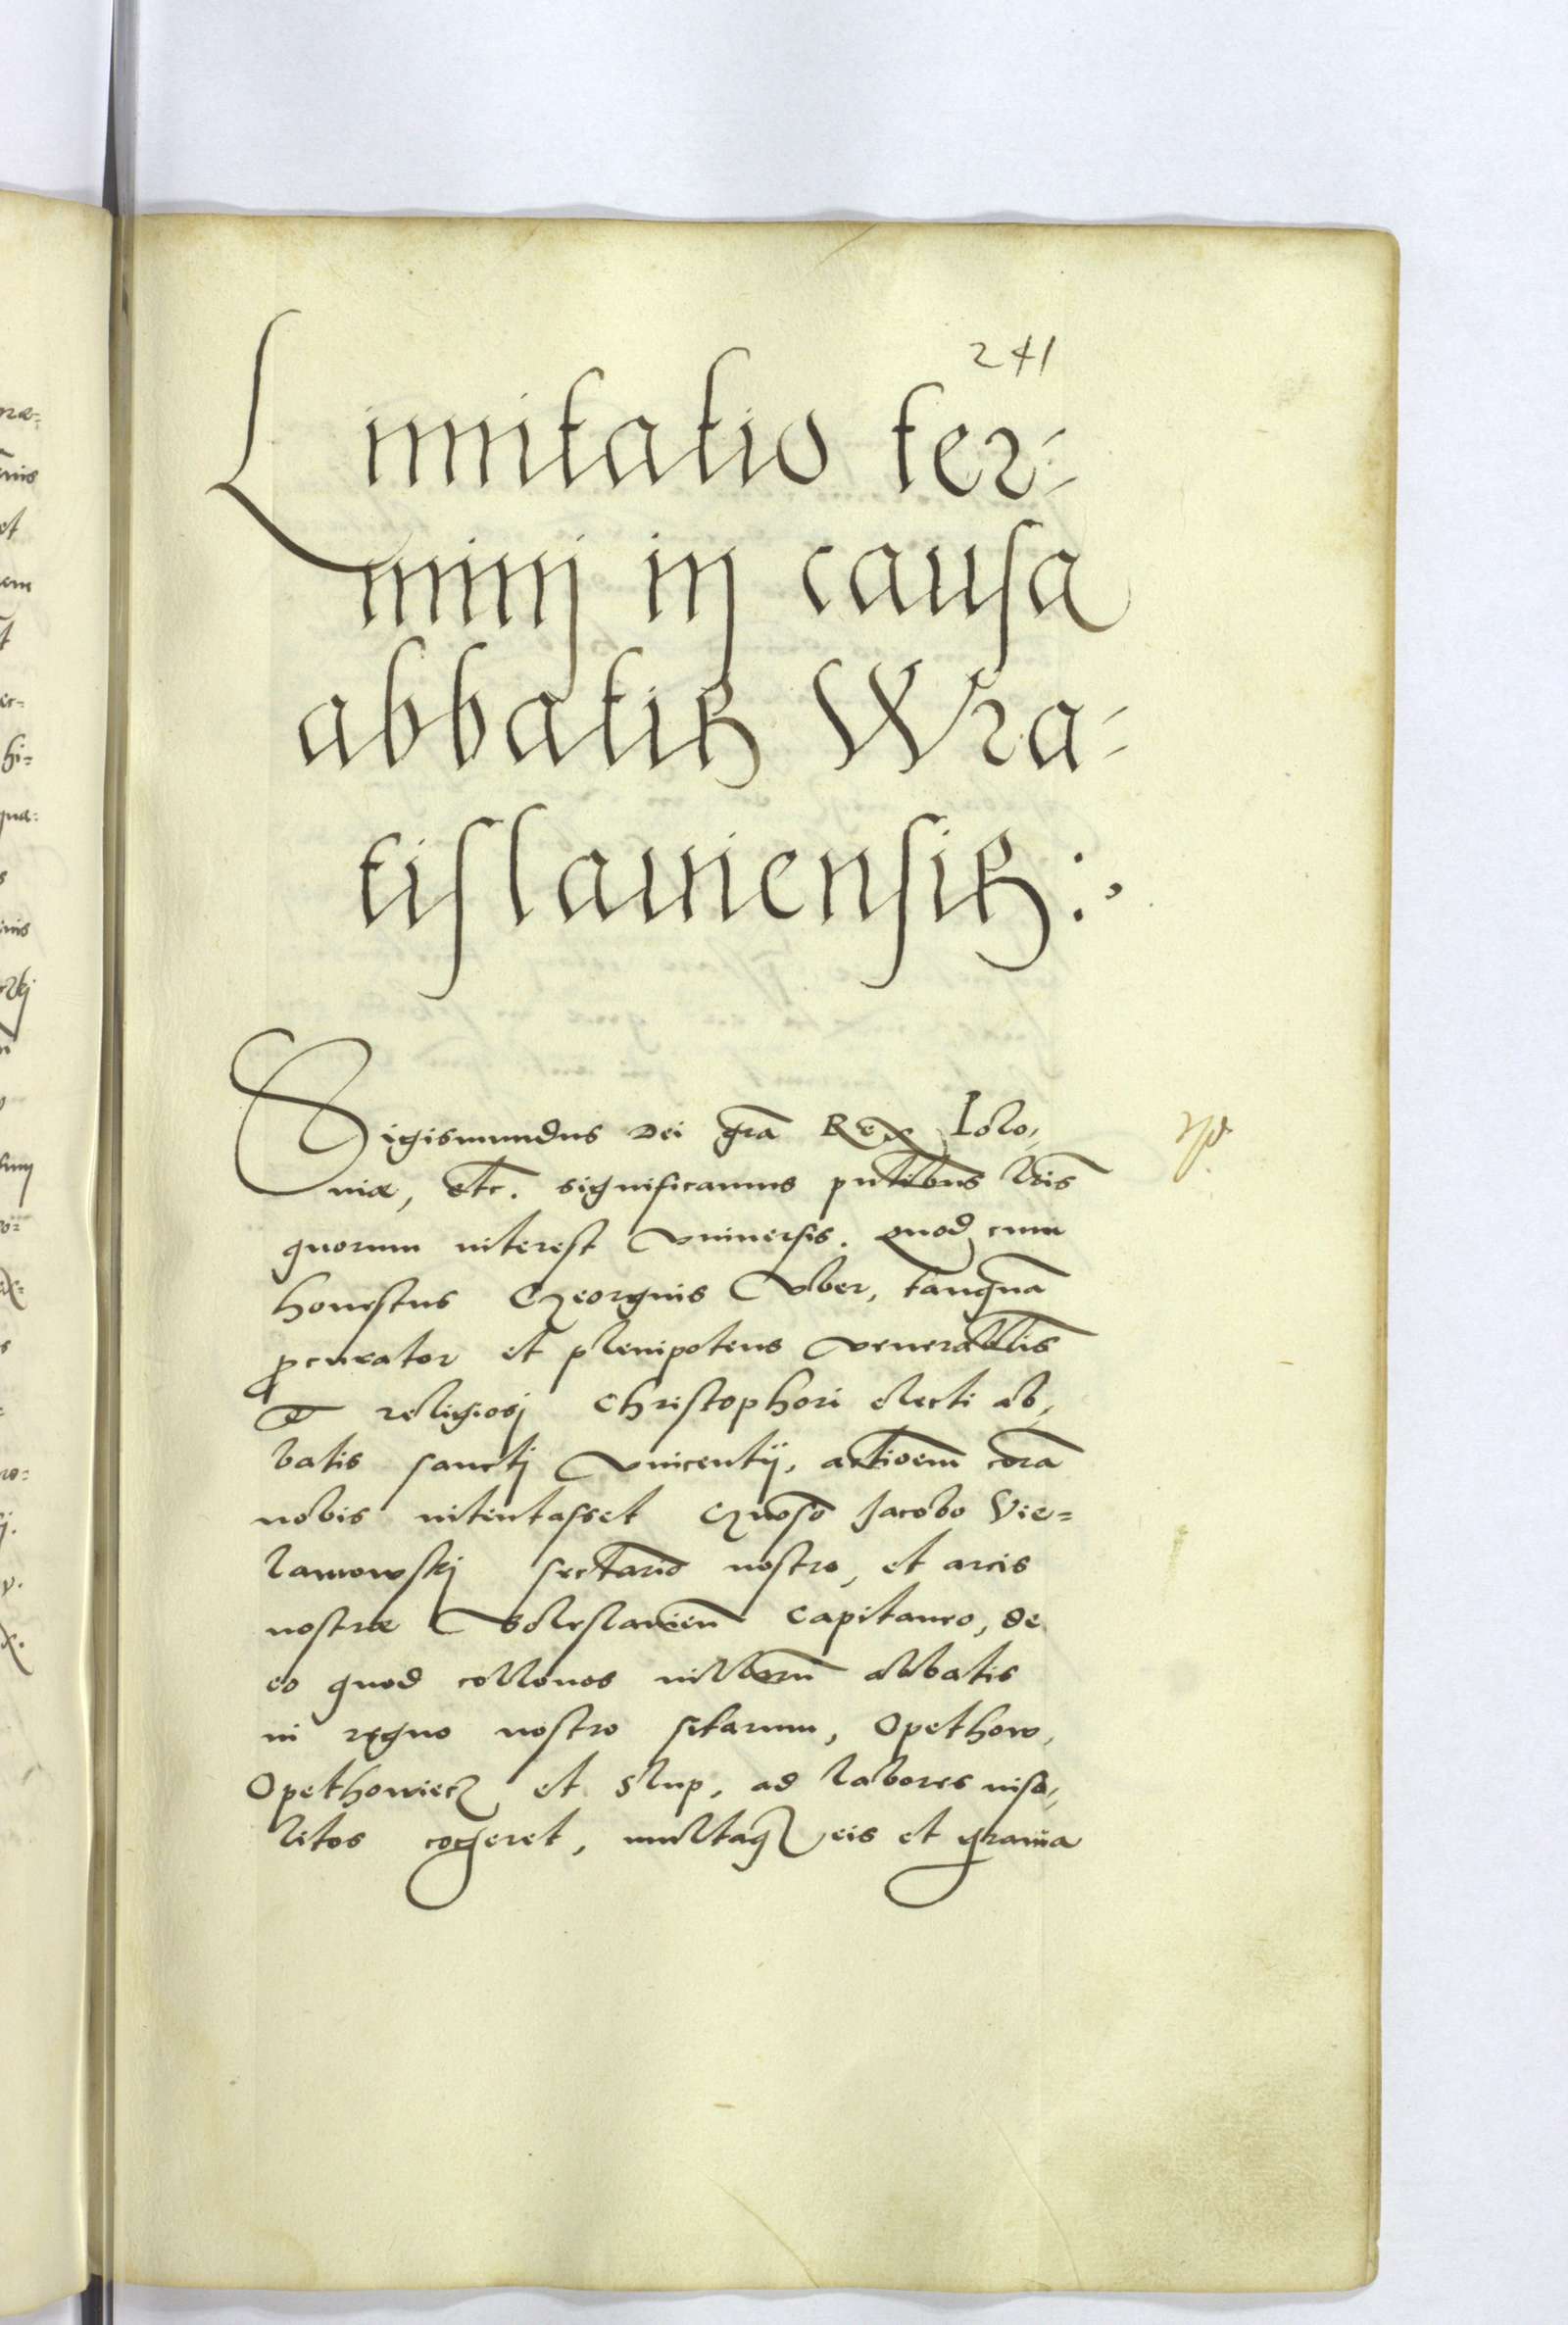 241
Limitatio ter-
minj in causa
abbatis Wra-
tislauiensis:
Sigismundus Dei gra̅ Rex Polo,
niæ, etc. significamus pn̅tibus lr̅is
quorum interest vniuersis. Quod cum
honestus Georgius Vber, tanqua̅
procurator et plenipotens venerabilis
et religiosj Christophori electi ab,
batis sanctj Vincentij, actioem̅ cora̅
nobis intentasset Gn̅oso Jacobo Vie=
lamowskj sectario̅ nostro, et arcis
nostræ Boleslauien̅ Capitaneo, de
eo quod collonos villaru̅ abbatis
in regno nostro sitarum, Opethow,
Opethowiecz et Slup, ad labores inso,
litos cogeret, multaq eis et grauia